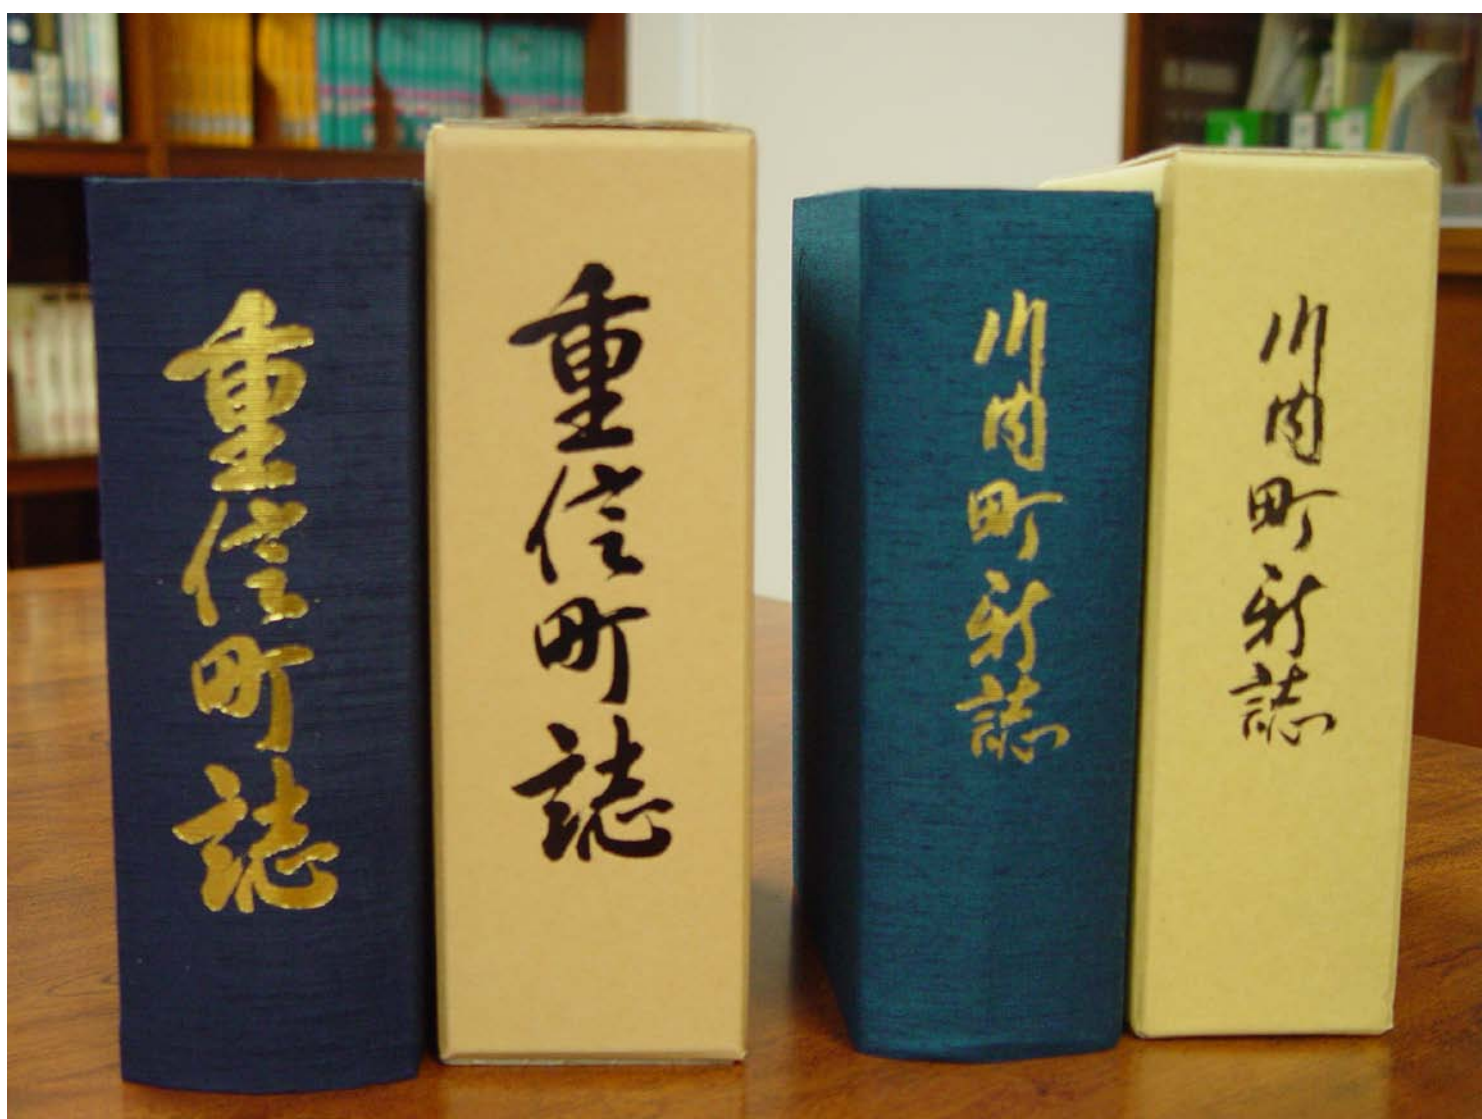 重信町誌
重信町誌
川内町新誌
川内町新誌